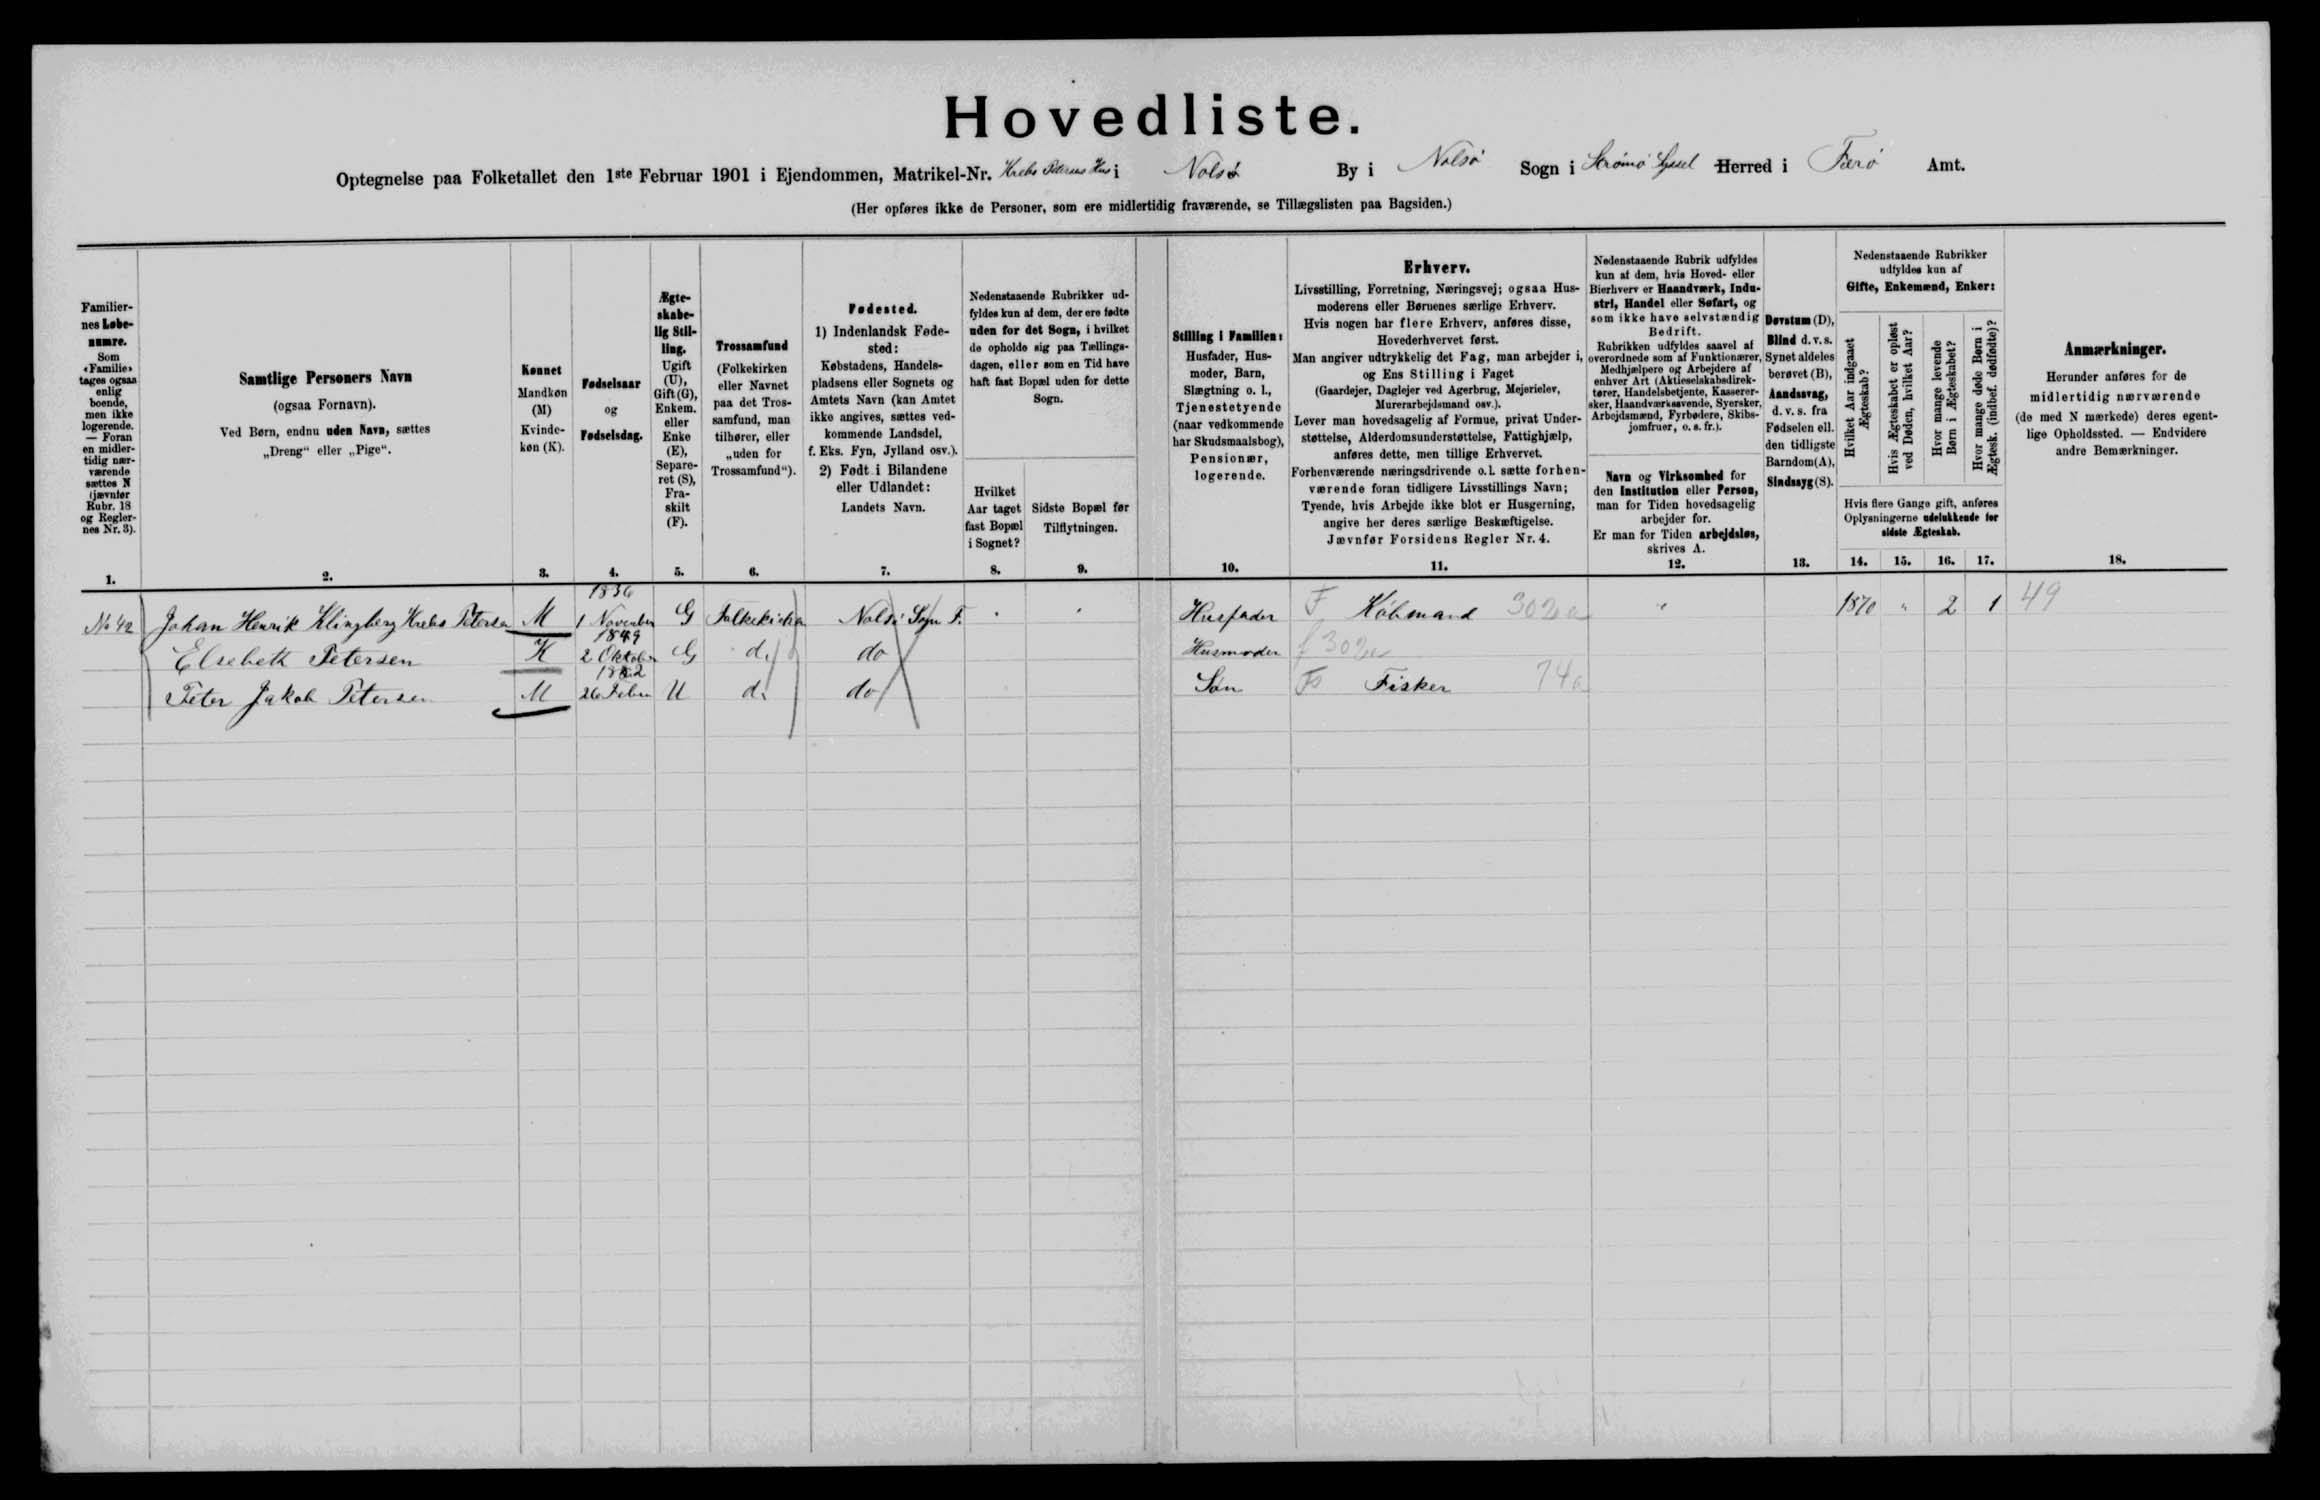 Hovedliste.
Optegnelse paa Folketallet den 1ste Februar 1901 i Ejendommen, Matrikel-Nr. Krebs Petersens Hus i Nolsö By i Nolsö Sogn i Strömö Syssel Herred i Færö Amt.
(Her opføres ikke de Personer, som ere midlertidig fraværende, se Tillægslisten paa Bagsiden.)
Familier-
nes Løbe-
numre.
Som
«Familie»
tages ogsaa
enlig
boende,
men ikke
logerende.
— Foran
en midler-
tidig nær-
værende
sættes N
(jævnfør
Rubr. 18
og Regler-
nes Nr. 3).
1.
Samtlige Personers Navn
(ogsaa Fornavn).
Ved Børn, endnu uden Navn, sættes
„Dreng“ eller „Pige“.
2.
Kønnet
Mandkøn
(M)
Kvinde-
køn (K).
3.
Fødselsaar
og
Fødselsdag.
4.
Ægte-
skabe-
lig Stil-
ling.
Ugift
(U),
Gift (G),
Enkem.
eller
Enke
(E),
Separe-
ret (S),
Fra-
skilt
(F).
5.
Trossamfund
(Folkekirken
eller Navnet
paa det Tros-
samfund, man
tilhører, eller
„uden for
Trossamfund“).
6.
Fødested.
1) Indenlandsk Føde-
sted:
Købstadens, Handels-
pladsens eller Sognets og
Amtets Navn (kan Amtet
ikke angives, sættes ved-
kommende Landsdel,
f. Eks. Fyn, Jylland osv.).
2) Født i Bilandene
eller Udlandet:
Landets Navn.
7.
Nedenstaaende Rubrikker ud-
fyldes kun af dem, der ere fødte
uden for det Sogn, i hvilket
de opholde sig paa Tællings-
dagen, eller som en Tid have
haft fast Bopæl uden for dette
Sogn.
Hvilket
Aar taget
fast Bopæl
i Sognet?
8.
Sidste Bopæl før
Tilflytningen.
9.
Stilling i Familien:
Husfader, Hus-
moder, Barn,
Slægtning o. l.,
Tjenestetyende
(naar vedkommende
har Skudsmaalsbog),
Pensionær,
logerende.
10.
Erhverv.
Livsstilling, Forretning, Næringsvej; ogsaa Hus-
moderens eller Børnenes særlige Erhverv.
Hvis nogen har flere Erhverv, anføres disse,
Hovederhvervet først.
Man angiver udtrykkelig det Fag, man arbejder i,
og Ens Stilling i Faget
(Gaardejer, Daglejer ved Agerbrug, Mejerielev,
Murerarbejdsmand osv.).
Lever man hovedsagelig af Formue, privat Under-
støttelse, Alderdomsunderstøttelse, Fattighjælp,
anføres dette, men tillige Erhvervet.
Forhenværende næringsdrivende o. l. sætte forhen-
værende foran tidligere Livsstillings Navn;
Tyende, hvis Arbejde ikke blot er Husgerning,
angive her deres særlige Beskæftigelse.
Jævnfør Forsidens Regler Nr. 4.
11.
Nedenstaaende Rubrik udfyldes
kun af dem, hvis Hoved- eller
Bierhverv er Haandværk, Indu-
stri, Handel eller Søfart, og
som ikke have selvstændig
Bedrift.
Rubrikken udfyldes saavel af
overordnede som af Funktionærer,
Medhjælpere og Arbejdere af
enhver Art (Aktieselskabsdirek-
tører, Handelsbetjente, Kasserer-
sker, Haandværkssvende, Syersker,
Arbejdsmænd, Fyrbødere, Skibs-
jomfruer, o. s. fr.).
Navn og Virksomhed for
den Institution eller Person,
man for Tiden hovedsagelig
arbejder for.
Er man for Tiden arbejdsløs,
skrives A.
12.
Døvstum (D),
Blind d. v. s.
Synet aldeles
berøvet (B),
Aandssvag,
d. v. s. fra
Fødselen ell.
den tidligste
Barndom (A),
Sindssyg (S).
13.
Nedenstaaende Rubrikker
udfyldes kun af
Gifte, Enkemænd, Enker:
Hvilket Aar indgaaet
Ægteskab?
Hvis Ægteskabet er opløst
ved Døden, hvilket Aar?
Hvor mange levende
Børn i Ægteskabet?
Hvor mange døde Børn i
Ægtesk. (indbef. dødfødte)?
Hvis flere Gange gift, anføres
Oplysningerne udelukkende for
sidste Ægteskab.
14. 15. 16. 17.
Anmærkninger.
Herunder anføres for de
midlertidig nærværende
(de med N mærkede) deres egent-
lige Opholdssted. — Endvidere
andre Bemærkninger.
18.
No 42 Johan Henrik Klingberg Krebs Petersen M 1836 1 November G Folkekirken Nolsö Sogn F. Husfader F Købmand 302a " 1870 " 2 1 49
Elsebeth Petersen K 1849 2 Oktober G do do Husmoder f 302a
Peter Jakob Petersen M 1882 26 Febru U do do Søn Fs Fisker 74a